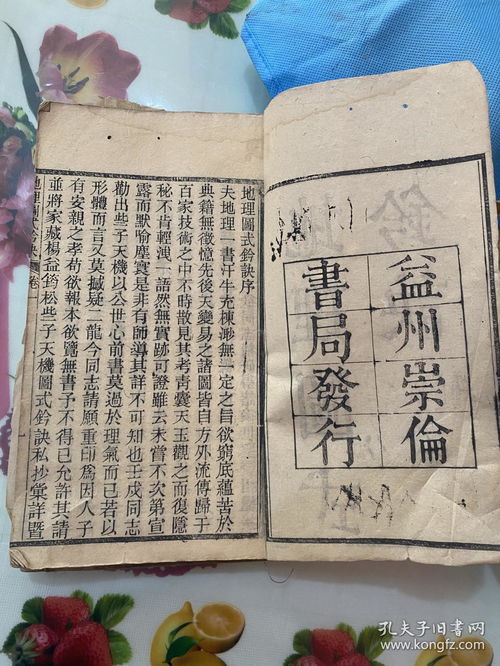 益州崇倫
書局發行
地理圖式鈐訣序
夫地理一書汗牛充棟渺無一定之旨欲窮底蘊苦於
典籍無徵憶先後天變易之諸圖皆自方外流傳歸于
百家技術之中不時散見其考靑囊天玉觀之而復隱
秘不肯輕洩一語然無實跡可證雖云未嘗不次第宣
露而默喻塵寰是非有師導其詳不可知也壬戍同志
勸出些子天機以公世心前書莫過於理氣而已若以
形體而言久莫撼疑二龍今同志請願重印爲因人子
有安親之孝苟欲報本欲覽無書子不得已允許其請
並將家藏楊益筠松些子天機圖式鈐訣私抄彙詳暨
地理圖式鈐訣 卷一
孔夫子旧书网
www.kongfz.com